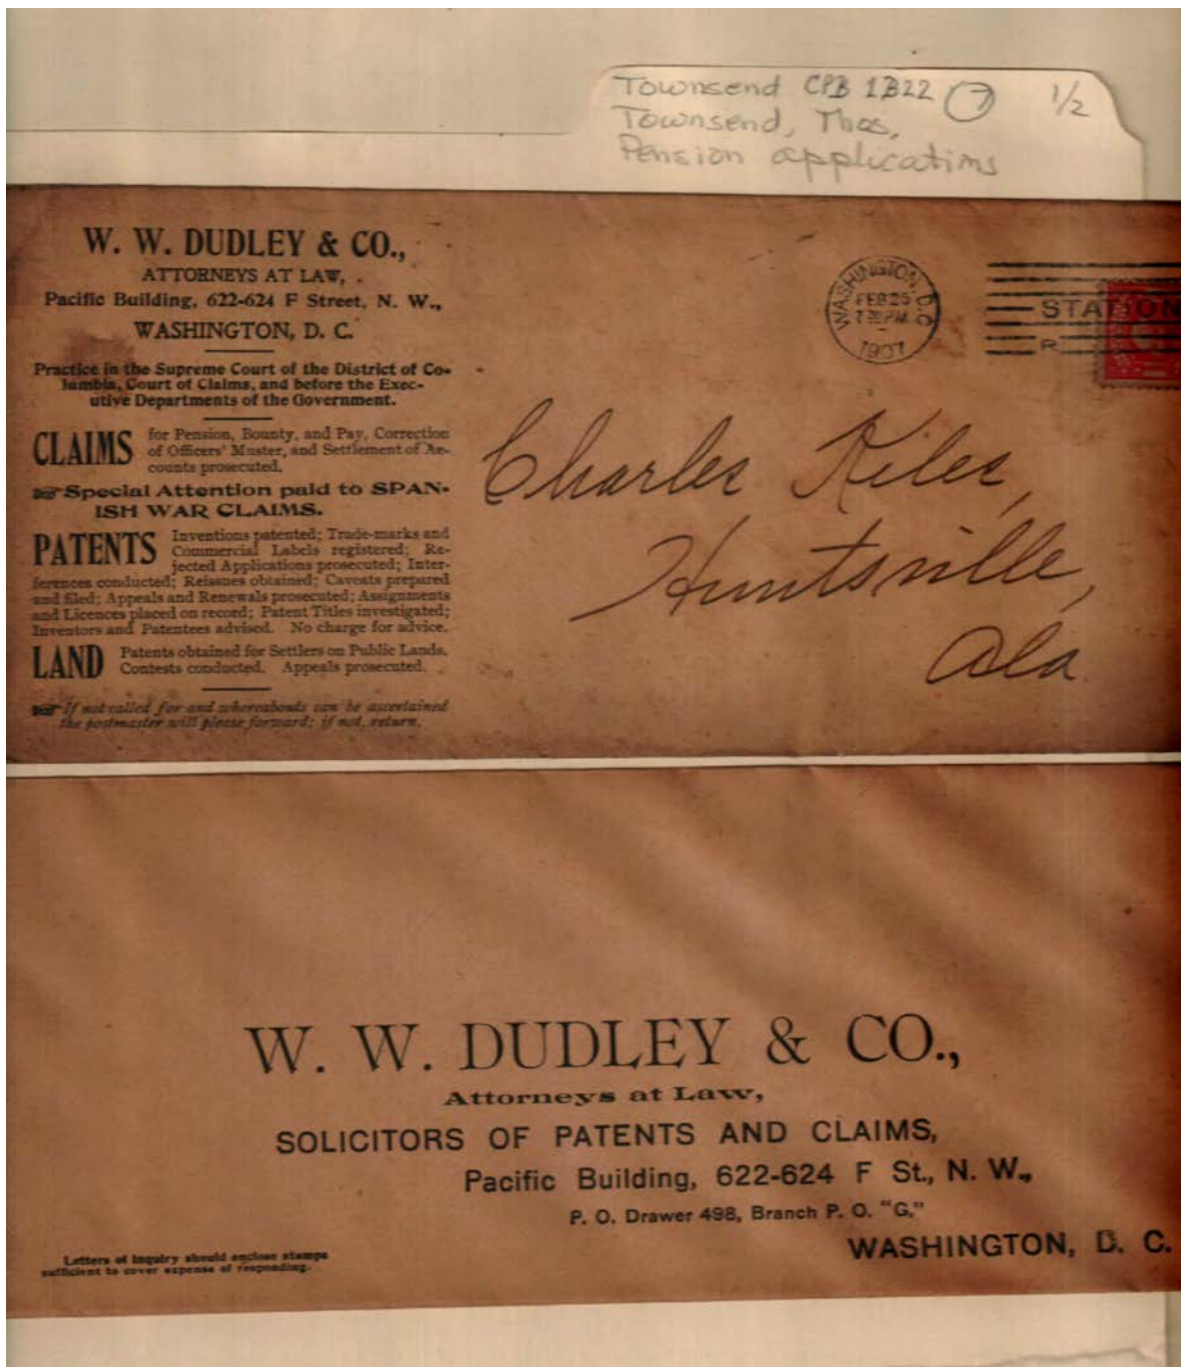 Townsend CPB 1B22 7 1/2
Townsend, Thos,
Pension applications
W. W. DUDLEY & CO.,
ATTORNEYS AT LAW,
Pacific Building, 622-624 F Street, N. W.,
WASHINGTON, D. C.
Practice in the Supreme Court of the District of Co-
lumbia, Court of Claims, and before the Exec-
utive Departments of the Government.
CLAIMS for Pension, Bounty, and Pay, Correction
of Officers' Muster, and Settlement of Ac-
counts prosecuted.
Special Attention paid to SPAN-
ISH WAR CLAIMS.
PATENTS Inventions patented; Trade-marks and
Commercial Labels registered; Re-
jected Applications prosecuted; Inter-
ferences conducted; Reissues obtained; Caveats prepared
and filed; Appeals and Renewals prosecuted; Assignments
and Licences placed on record; Patent Titles investigated;
Inventors and Patentees advised. No charge for advice.
LAND Patents obtained for Settlers on Public Lands.
Contests conducted. Appeals prosecuted.
If not called for and whereabouts can be ascertained
the postmaster will please forward; if not, return.
WASHINGTON, D.C.
FEB 25
PM
1907
STATION
Charles Kiles,
Huntsville,
Ala
W. W. DUDLEY & CO.,
Attorneys at Law,
SOLICITORS OF PATENTS AND CLAIMS,
Pacific Building, 622-624 F St., N. W.,
P. O. Drawer 498, Branch P. O. "G,"
WASHINGTON, D. C.
Letters of inquiry should enclose stamps
sufficient to cover expense of responding.